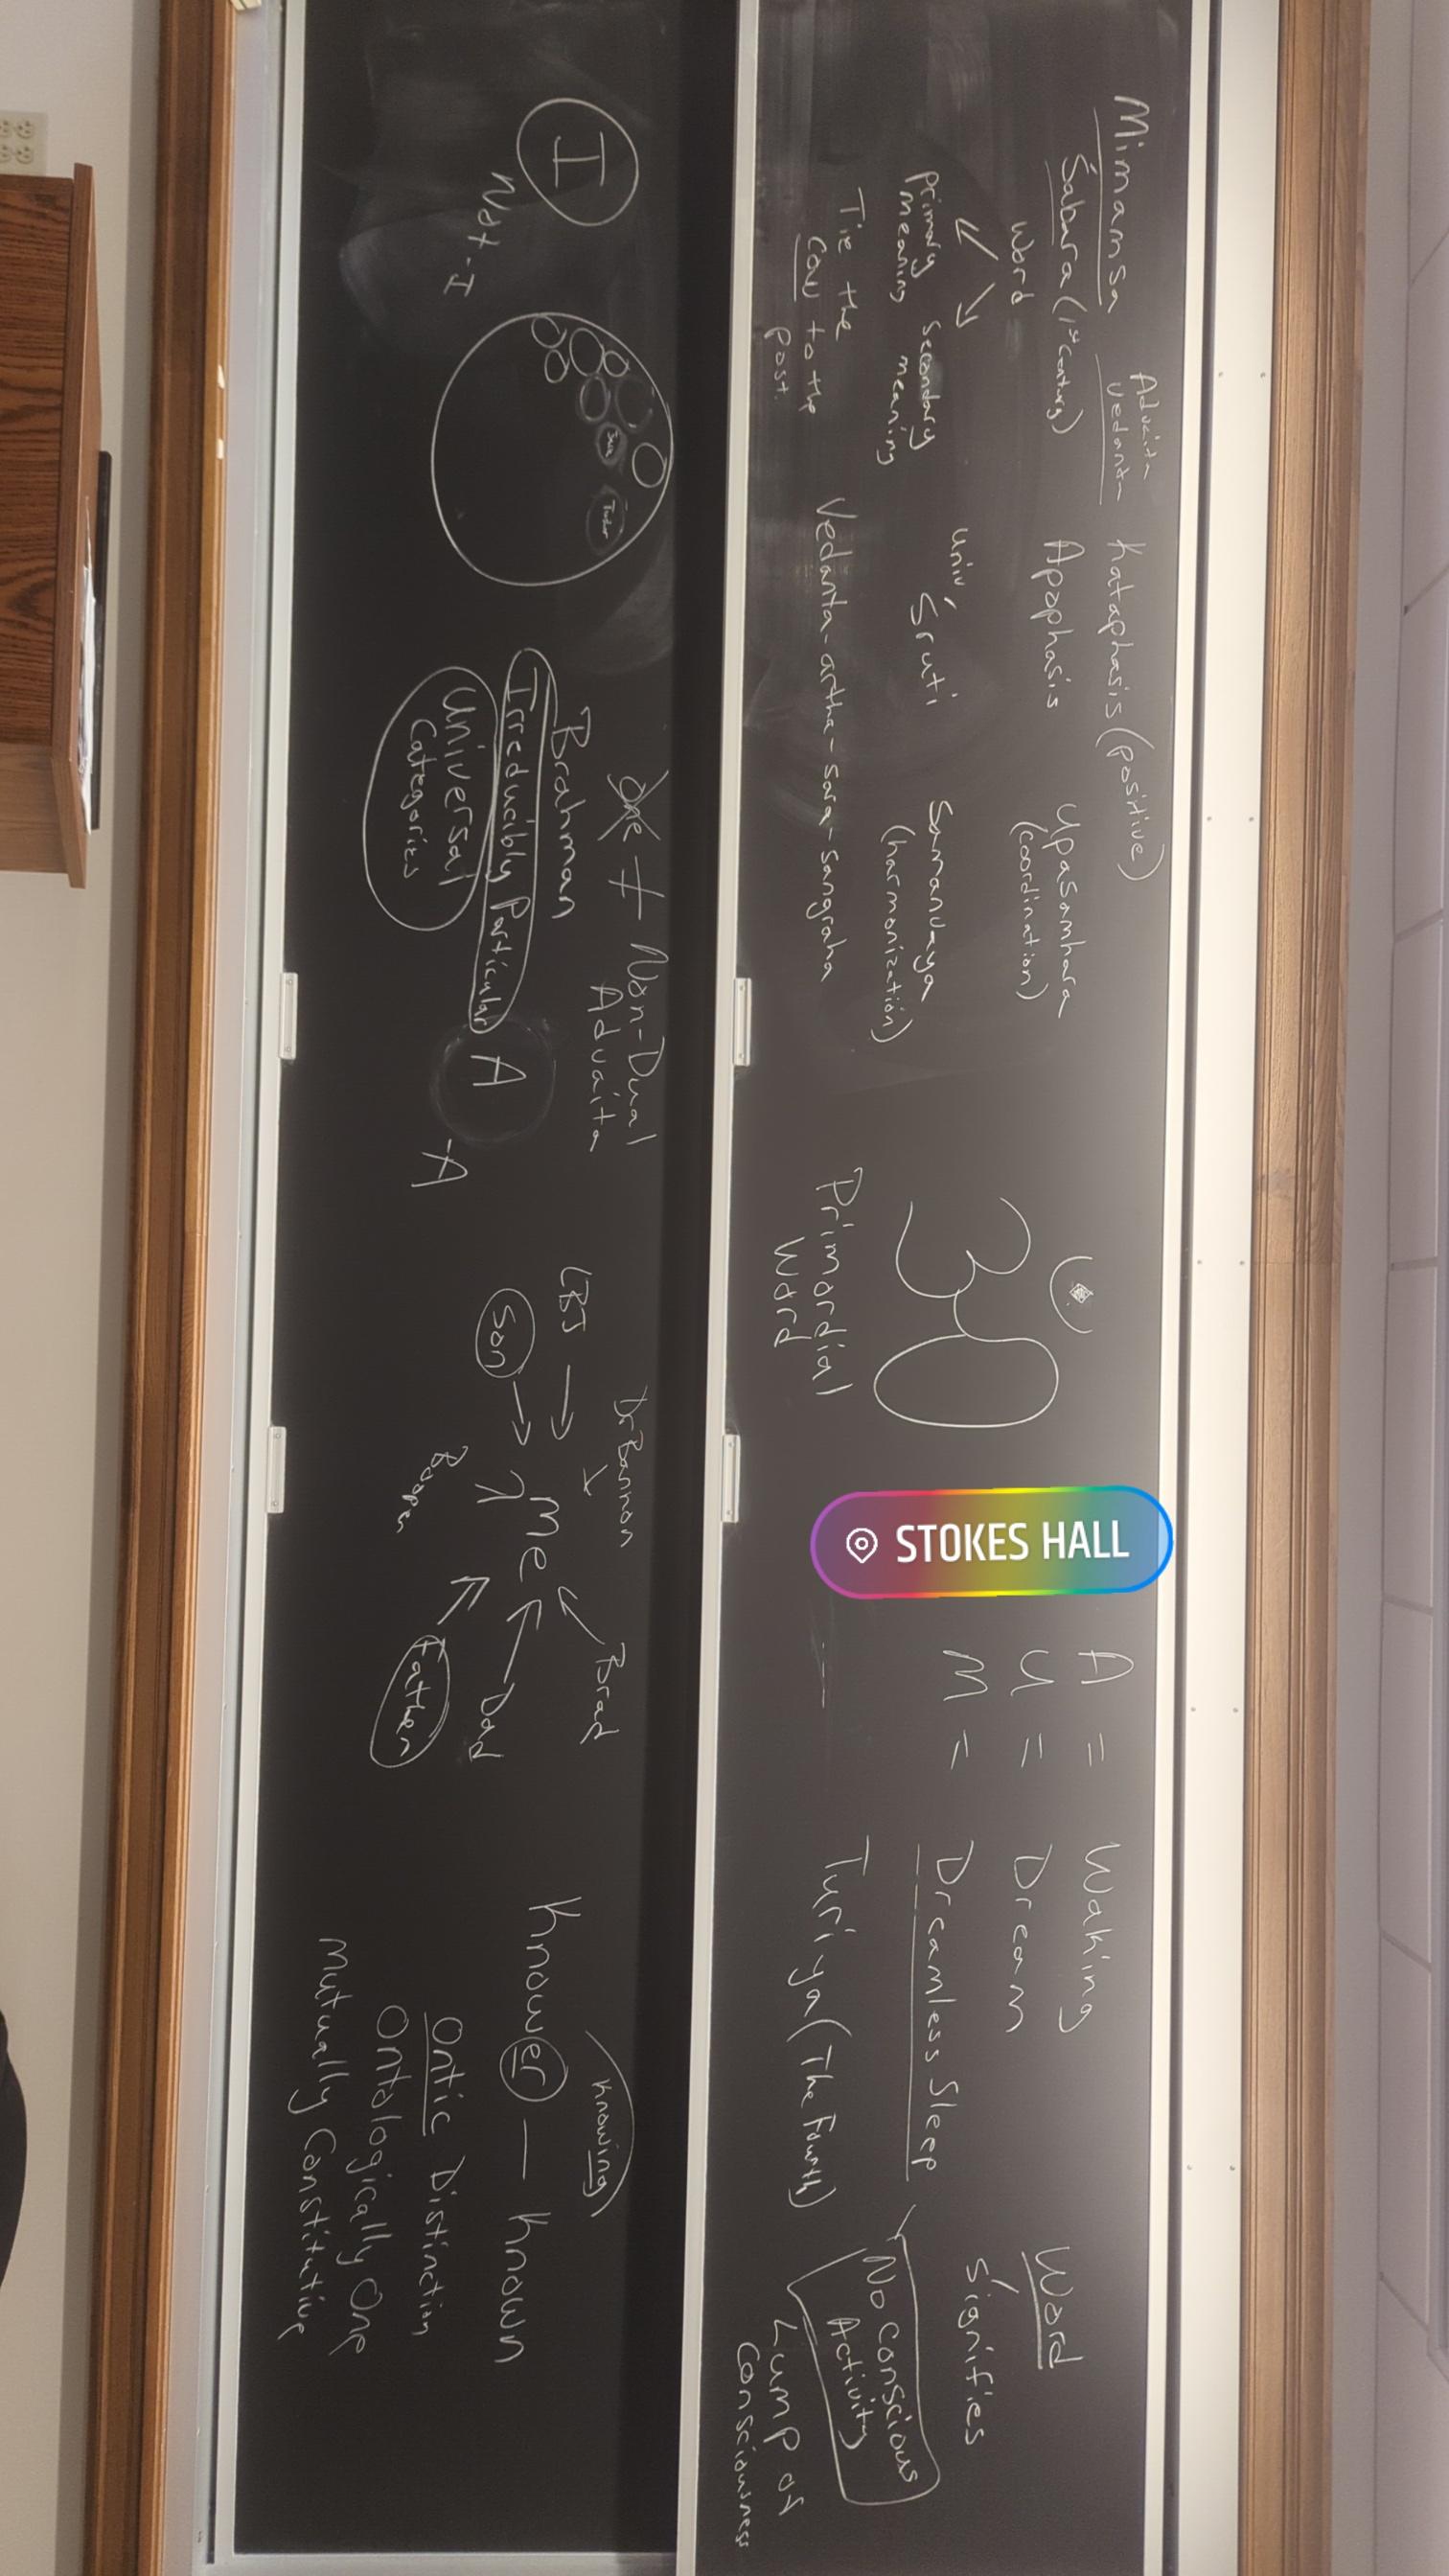 Mimamsa
Śabara (1st Century)
Word
Primary meaning
Secondary meaning
Tie the
cow to the
post.
Advaita
Vedanta
Kataphasis (positive)
Apophasis
Upasamhara
(coordination)
univ
Śruti
Samanvaya
(harmonization)
Vedanta-artha-sara-sangraha
Primordial
Word
STOKES HALL
A = Waking
U = Dream
M = Dreamless Sleep
Turiya (The Fourth)
Word
Signifies
No Conscious
Activity
Lump of
Consciousness
I
Not-I
one ≠ Non-Dual
Advaita
Brahman
Irreducibly Particular
Universal
Categories
A
-A
Dr Bannon
Brad
LBJ
Me
Son
Dad
Father
Knowing
Knower — Known
Ontic Distinction
Ontologically One
Mutually Constitutive